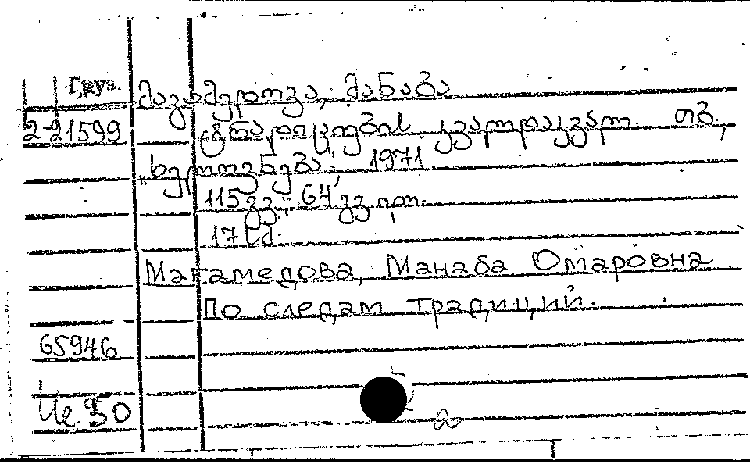 Груз.
მაგამედოვა, მანაბა
2-21599
ტრადიციების კვალდაკვალ თბ.,
"ხელოვნება", 1971
115 გვ., 64 გვ. ილ.
17 სმ.
Магамедова, Манаба Омаровна
По следам традиций.
65946
Це. 50